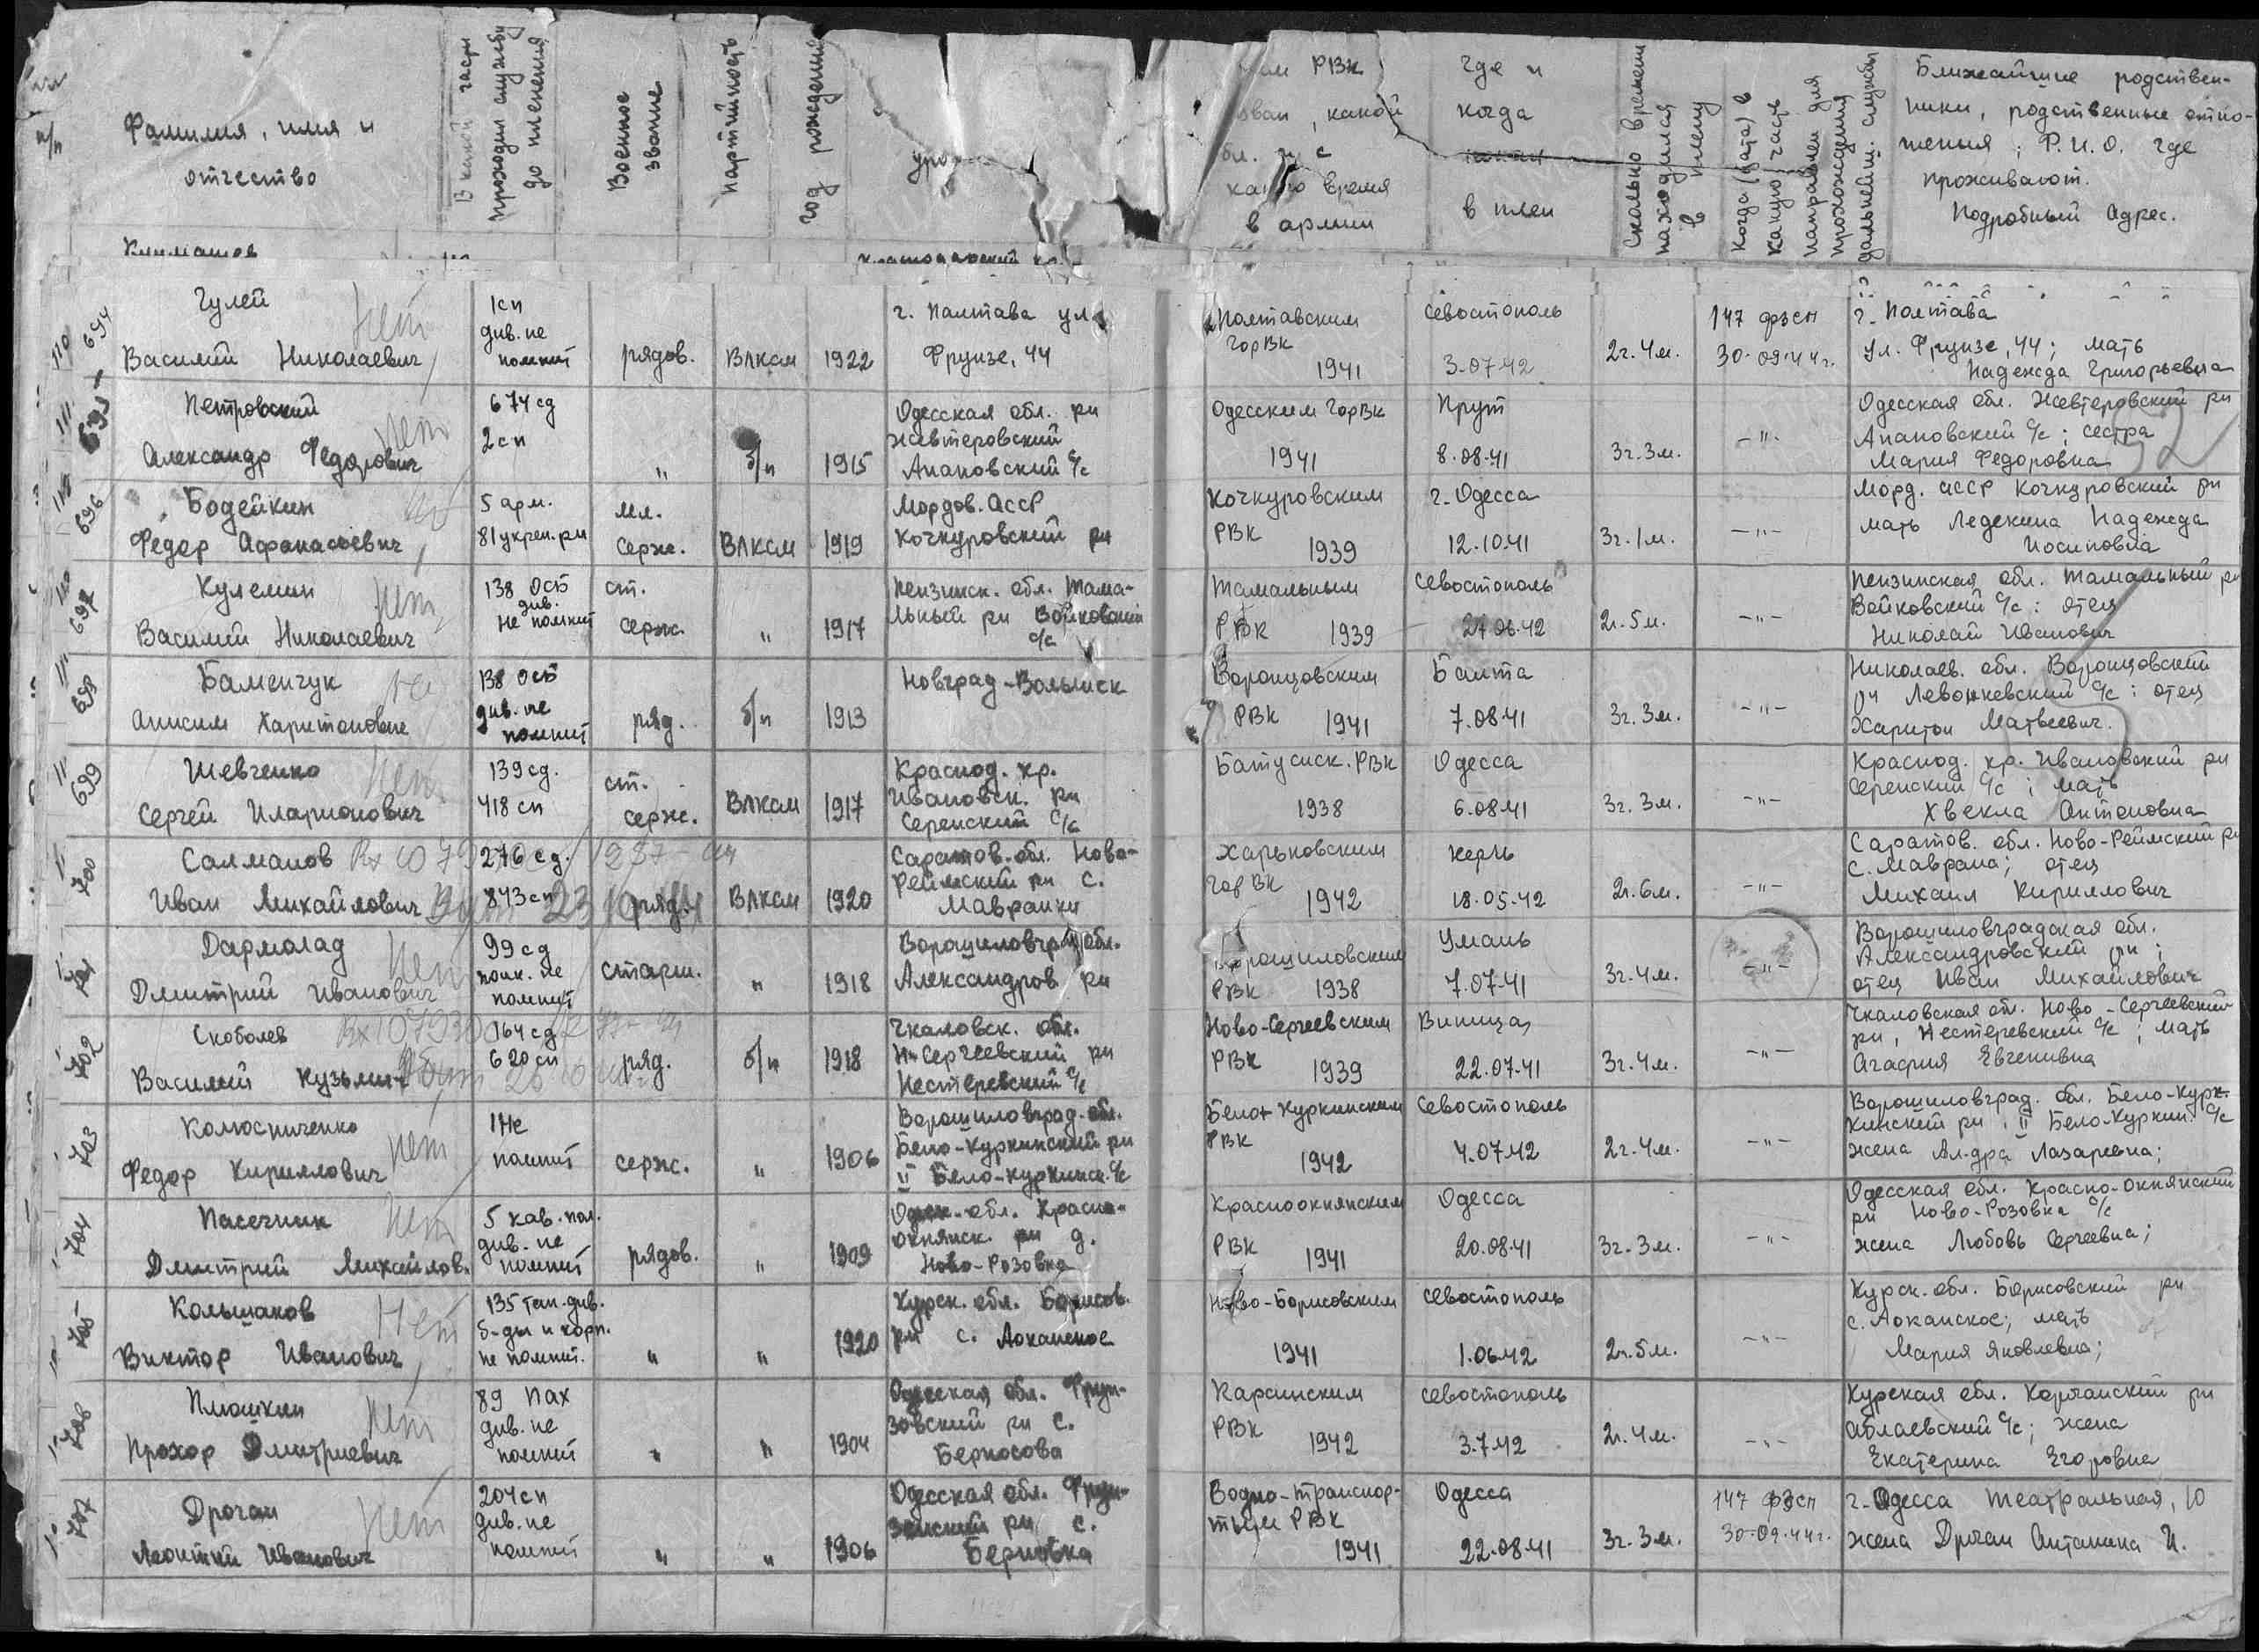 п/п
Фамилия, имя и
отчество
В какой части
проходил службу
до пленения
Военное
звание
партийность
год рождения
уро
РВК
зван, какой
обл. и с
какого время
в армии
где и
когда
попал
в плен
Сколько времени
находился
в
плену
Когда (дата) в
какую часть
направлен для
прохождения
дальнейш. службы
Ближайшие родствен-
ники, родственные отно-
шения; Ф.И.О. где
проживают.
Подробный адрес.
694
Гулей
Василий Николаевич
нет
1сп
див. не
помнит
рядов.
ВЛКСМ
1922
г. Полтава ул
Фрунзе, 44
Полтавским
ГорВК
1941
Севостополь
3.07.42
2г.4м.
147 фзсп
30.09.44г.
г. Полтава
ул. Фрунзе, 44; мать
Надежда Григорьевна
695
Петровский
Александр Федорович
нет
674 сд
2 сп
"
б/п
1915
Одесская обл. рн
Жевтеровский
Апановский с/с
Одесским ГорВК
1941
Прут
8.08.41
3г.3м.
-"-
Одесская обл. Жевтеровский рн
Апановский с/с; сестра
Мария Федоровна
696
Бодейкин
Федор Афанасьевич
5 арм.
81 укреп.рн
мл.
серж.
ВЛКСМ
1919
Мордов. АССР
Кочкуровский рн
Кочкуровским
РВК
1939
г. Одесса
12.10.41
3г.1м.
-"-
Морд. АССР Кочкуровский рн
мать Ледекина Надежда
Иосиповна
697
Кулемин
Василий Николаевич
нет
138 ОСБ
див.
не помнит
ст.
серж.
"
1917
Пензинск. обл. Тама-
льный рн Войковский
с/с
Тамальным
РВК
1939
Севостополь
27.06.42
2г.5м.
-"-
Пензинская обл. Тамальный рн
Войковский с/с: отец
Николай Иванович
698
Баменчук
Анисим Харитонович
138 ОСБ
див. не
помнит
ряд.
б/п
1913
Новград-Волынск
Воронцовским
РВК
1941
Балта
7.08.41
3г.3м.
-"-
Николаев. обл. Воронцовский
рн Левонкевский с/с: отец
Харитон Матвеевич.
699
Шевченко
Сергей Иларионович
нет
139 сд.
718 сп
ст.
серж.
ВЛКСМ
1917
Краснод. кр.
Ивановск. рн
Серенский с/с
Батусиск. РВК
1938
Одесса
6.08.41
3г.3м.
-"-
Краснод. кр. Ивановский рн
Серенский с/с; мать
Хвекла Антоновна
700
Салманов
Иван Михайлович
276 сд.
873 сп
ряд.
ВЛКСМ
1920
Саратов. обл. Ново-
Реймский рн с.
Мавранки
Харьковским
ГорВК
1942
Керчь
18.05.42
2г.6м.
-"-
Саратов. обл. Ново-Реймский рн
с. Маврана; отец
Михаил Кириллович
701
Дармолад
Дмитрий Иванович
нет
99 сд
полк. не
помнит
старш.
"
1918
Ворошиловград обл.
Александров рн
Ворошиловским
РВК
1938
Умань
7.07.41
3г.4м.
-"-
Ворошиловградская обл.
Александровский рн;
отец Иван Михайлович
702
Скоболев
Василий Кузьмич
164 сд
620 сп
ряд.
б/п
1918
Чкаловск. обл.
Н-Сергеевский рн
Нестеревский с/с
Ново-Сергеевским
РВК
1939
Виница
22.07.41
3г.4м.
-"-
Чкаловская обл. Ново-Сергеевский
рн, Нестеревский с/с; мать
Агафия Евгенивна
703
Колюсниченко
Федор Кириллович
нет
1 Не
помнит
серж.
"
1906
Ворошиловград. обл.
Бело-Куркинский рн
II Бело-Куркинск. с/с
Бело-Куркинским
РВК
1942
Севостополь
4.07.42
2г.4м.
-"-
Ворошиловград. обл. Бело-Курк-
кинский рн, II Бело-Куркин. с/с
жена Ал-дра Лазаревна;
704
Пасечник
Дмитрий Михайлов.
нет
5 кав.пол.
див. не
помнит
рядов.
"
1909
Одеск. обл. Красно-
окнянск. рн д.
Ново-Розовка
Красноокнянским
РВК
1941
Одесса
20.08.41
3г.3м.
-"-
Одесская обл. Красно-окнянский
рн Ново-Розовка с/с
жена Любовь Сергеевна;
705
Колышаков
Виктор Иванович
нет
135 тан.див.
б-ды и корп.
не помнит.
"
"
1920
Курск. обл. Борисов.
рн с. Локанское
Ново-Борисовским
1941
Севостополь
1.06.42
2г.5м.
-"-
Курск. обл. Борисовский рн
с. Локанское; мать
Мария Яковлевна;
706
Плюшкин
Прохор Дмитриевич
нет
89 ПАХ
див. не
помнит
"
"
1904
Одесская обл. Фрун-
зовский рн с.
Берносова
Карсинским
РВК
1942
Севостополь
3.7.42
2г.4м.
-"-
Курская обл. Корчанский рн
Аблаевский с/с; жена
Екатерина Егоровна
707
Дрочан
Леонтий Иванович
нет
204 сп
див. не
помнит
"
"
1906
Одесская обл. Фрун-
зенский рн с.
Берновка
Водно-транспор-
тным РВК
1941
Одесса
22.08.41
3г.3м.
147 ФЗсп
30.09.44г.
г. Одесса Театральная, 10
жена Дрочан Антонина И.